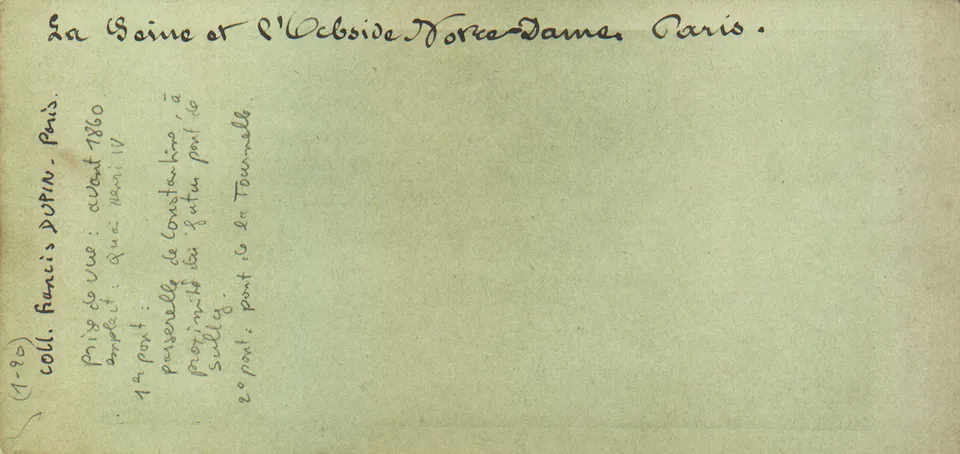 La Seine et l'Abside Notre-Dame. Paris.
(1-20)
coll. Francis DUPIN - Paris.
prise de vue : avant 1860
emplact : quai Henri IV
1er pont :
passerelle de Constantine, à
proximité du futur pont de
Sully.
2° pont : pont de la Tournelle.